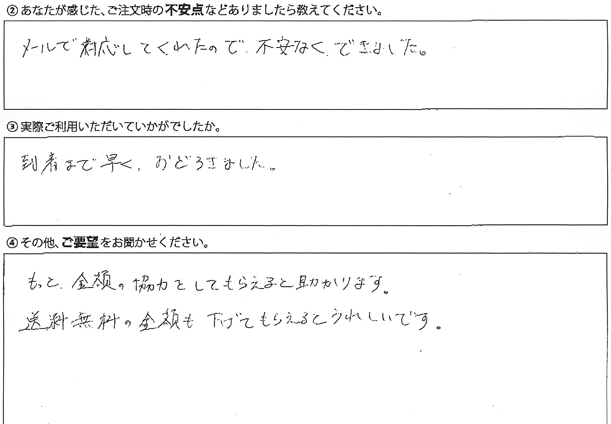 ②あなたが感じた、ご注文時の不安点などありましたら教えてください。
メールで対応してくれたので、不安なく、できました。
③実際ご利用いただいていかがでしたか。
到着まで早く、おどろきました。
④その他、ご要望をお聞かせください。
もっと、金額の協力をしてもらえると助かります。
送料無料の金額も下げてもらえるとうれしいです。